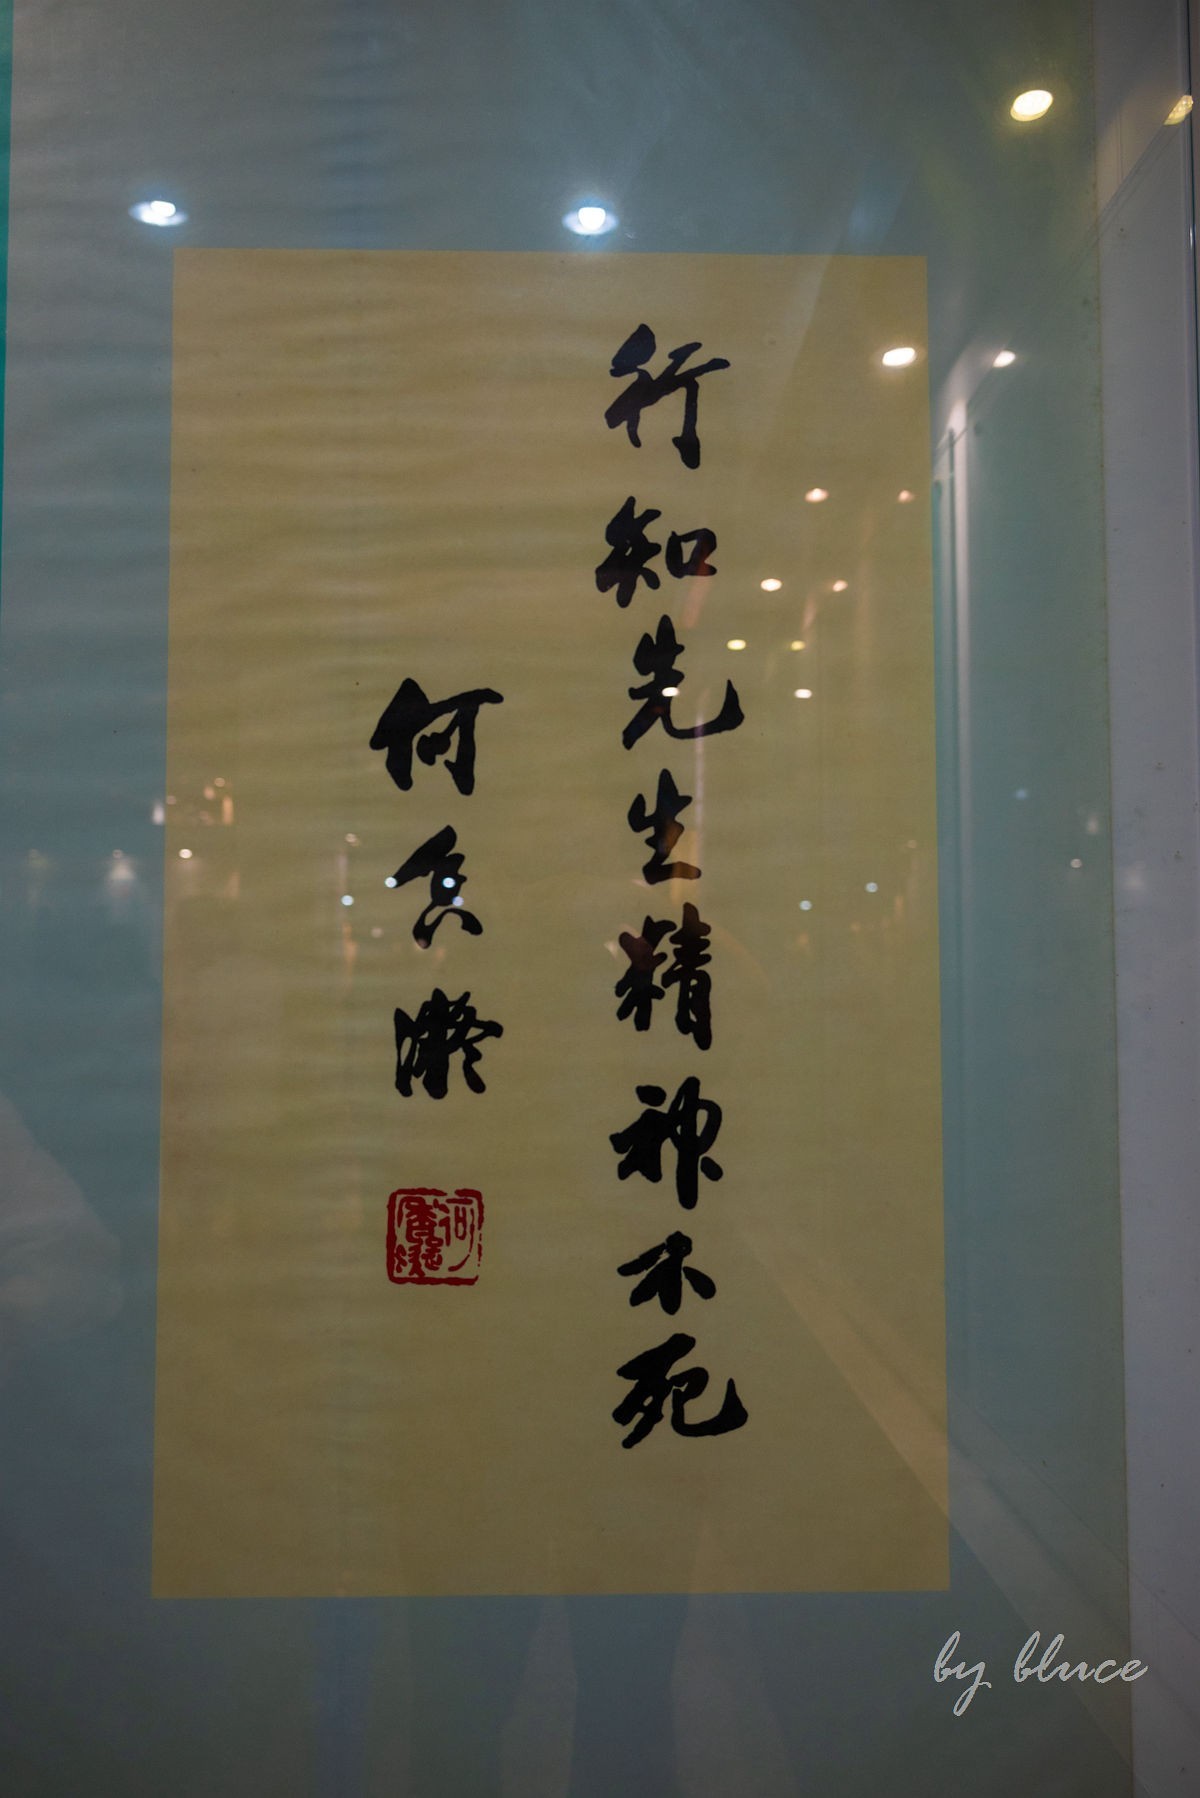 行知先生精神不死
何香凝
何香凝
by bluce